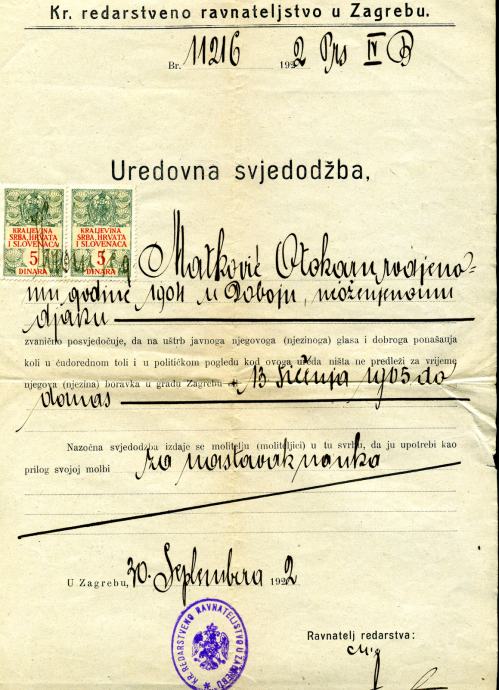 Kr. redarstveno ravnateljstvo u Zagrebu.
Br. 11216 1922 Prs IV B
Uredovna svjedodžba,
KRALJEVINA SRBA, HRVATA I SLOVENACA 5 DINARA
KRALJEVINA SRBA, HRVATA I SLOVENACA 5 DINARA
Matković Otokaru rodjeno-
mu godine 1904 u Doboju, neoženjenomu
djaku
zvanično posvjedočuje, da na uštrb javnoga njegovoga (njezinoga) glasa i dobroga ponašanja
koli u ćudorednom toli i u političkom pogledu kod ovoga ureda ništa ne predleži za vrijeme
njegova (njezina) boravka u gradu Zagrebu 13 Siječnja 1905 do
danas
Nazočna svjedodžba izdaje se molitelju (moliteljici) u tu svrhu, da ju upotrebi kao
prilog svojoj molbi za nastavak nauka
U Zagrebu, 30. Septembra 1922
KR. REDARSTVENO RAVNATELJSTVO U ZAGREBU
Ravnatelj redarstva: